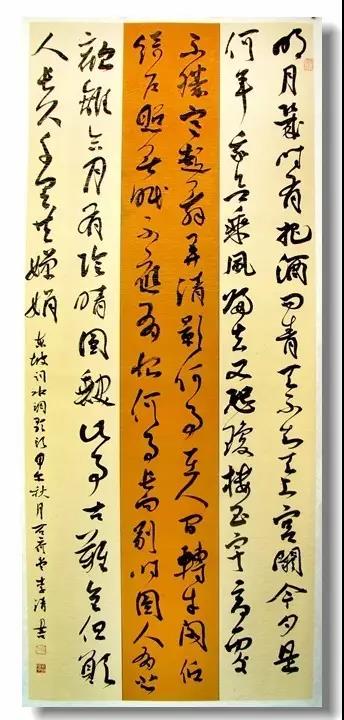 明月幾時有把酒問青天不知天上宮闕今夕是
何年我欲乘風歸去又恐瓊樓玉宇高處
不勝寒起舞弄清影何似在人間轉朱閣低
綺戶照無眠不應有恨何事長向別時圓人有悲
歡離合月有陰晴圓缺此事古難全但願
人長久千里共嬋娟
東坡詞水調歌頭甲午秋月李清書